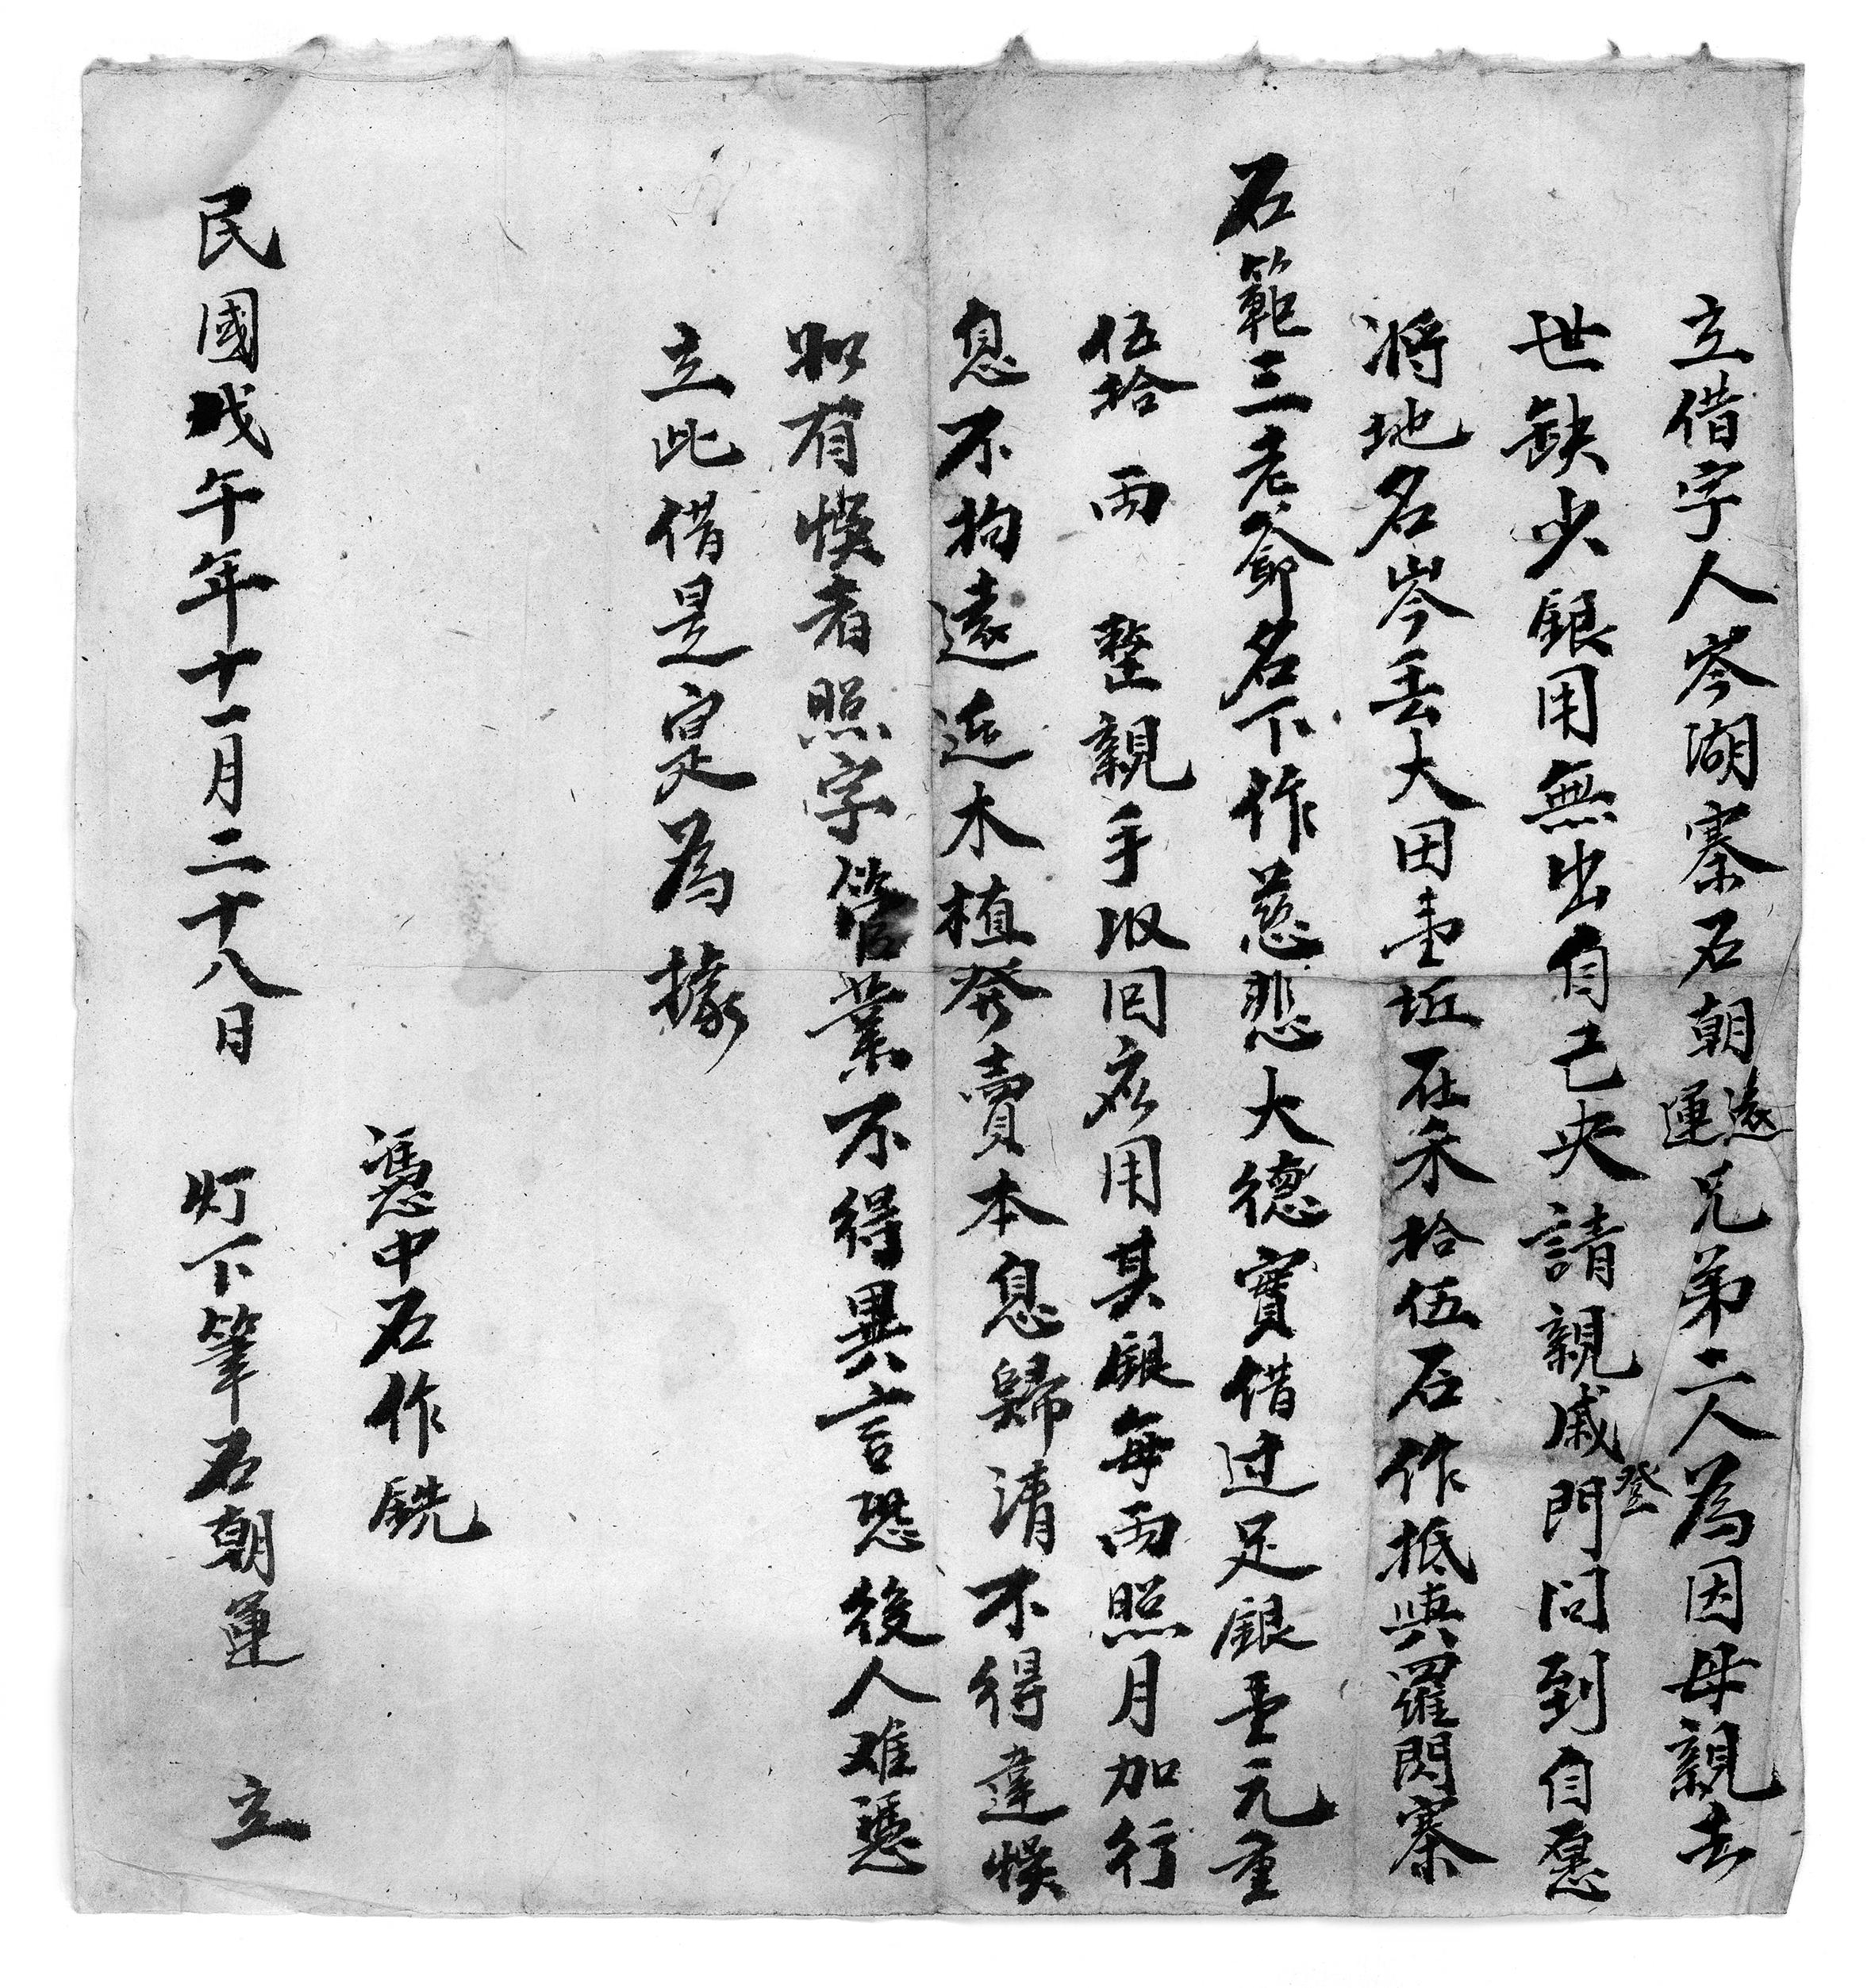 立借字人岑湖寨石朝遠運兄弟二人為因母親去
世缺少銀用無出自己央請親戚登門问到自愿
将地名岑丟大田壹坵在禾拾伍石作抵與羅閃寨
石範三老爺名下作慈悲大德實借过足銀壹元重
伍拾两整親手収囘應用其銀每两照月加行
息不拘遠近木植發賣本息歸清不得違悮
如有悮者照字管業不得異言恐後人难憑
立此借是寔為據
憑中石作銑
民國戊午年十一月二十八日 灯下筆石朝運 立